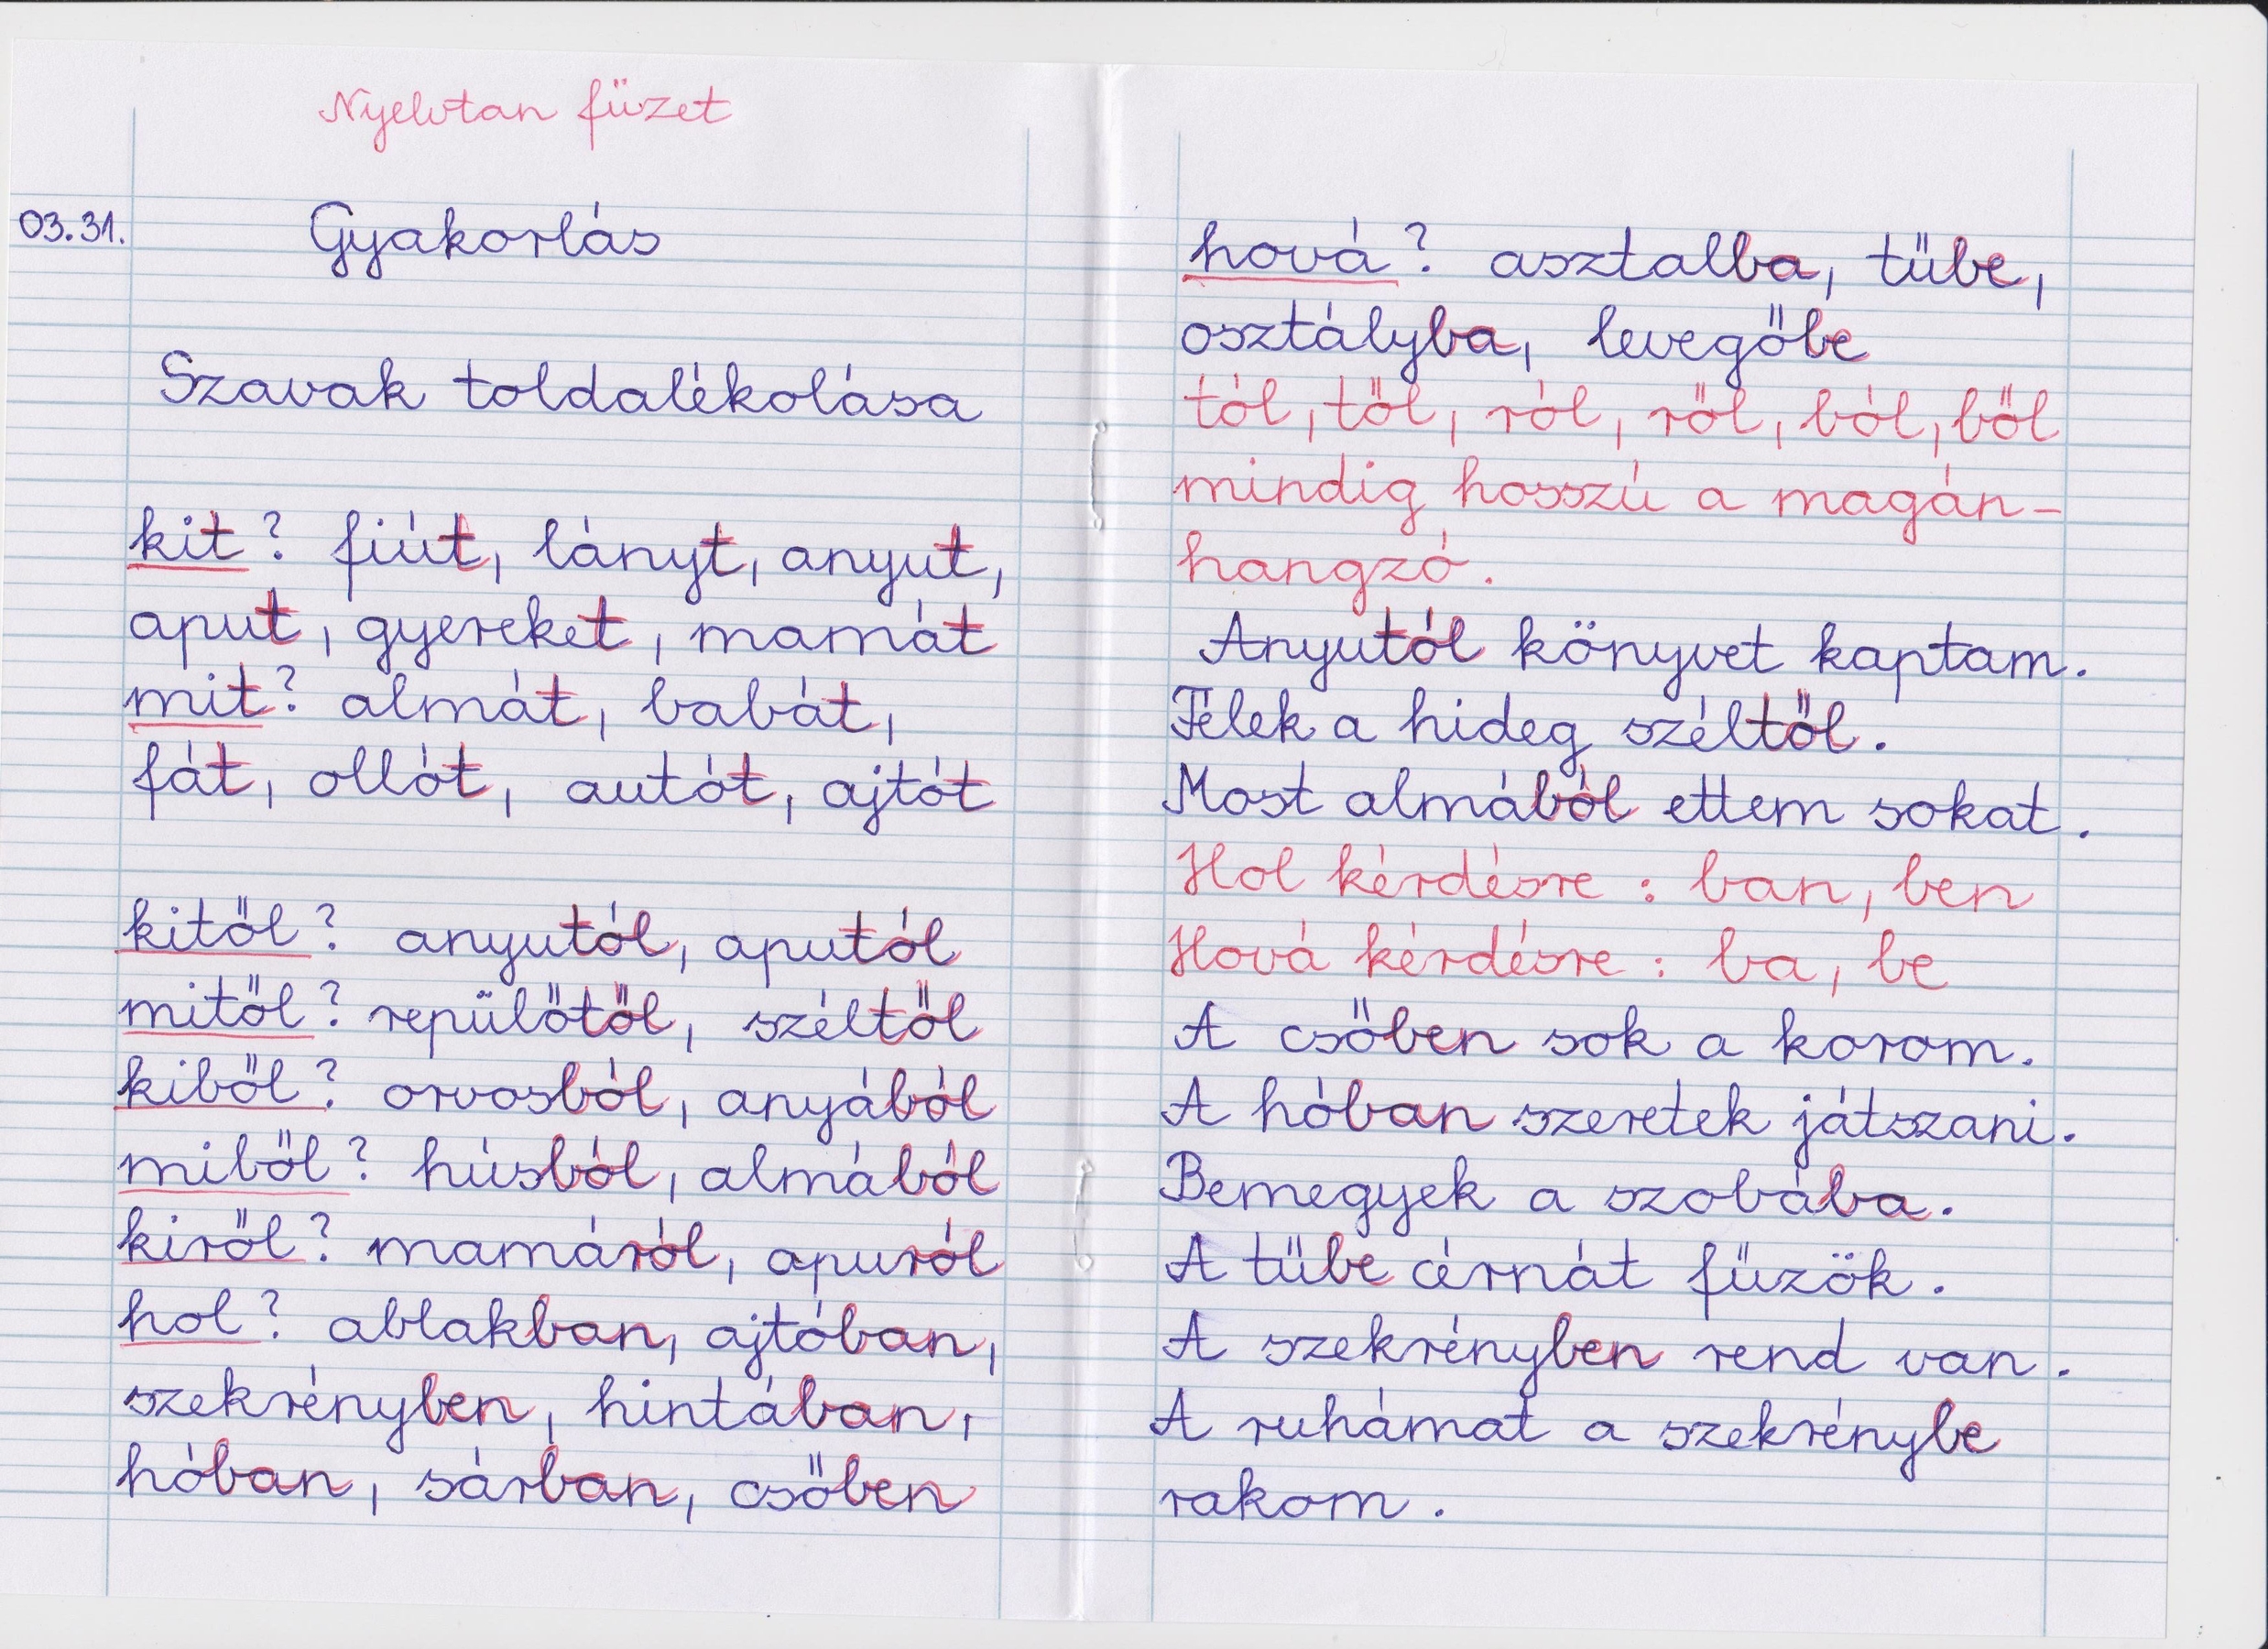 Nyelvtan füzet
03.31. Gyakorlás
Szavak toldalékolása
kit? fiút, lányt, anyut,
aput, gyereket, mamát
mit? almát, babát,
fát, ollót, autót, ajtót
kitől? anyutól, aputól
mitől? repűlőtől, széltől
kiből? orvosból, anyából
miből? húsból, almából
kiről? mamáról, apuról
hol? ablakban, ajtóban,
szekrényben, hintában,
hóban, sárban, csőben
hová? asztalba, tűbe,
osztályba, levegőbe
tól, től, ról, ről, ból, ből
mindig hosszú a magán-
hangzó.
Anyutól könyvet kaptam.
Félek a hideg széltől.
Most almából ettem sokat.
Hol kérdésre: ban, ben
Hová kérdésre: ba, be
A csőben sok a korom.
A hóban szeretek játszani.
Bemegyek a szobába.
A tűbe cérnát fűzök.
A szekrényben rend van.
A ruhámat a szekrénybe
rakom.